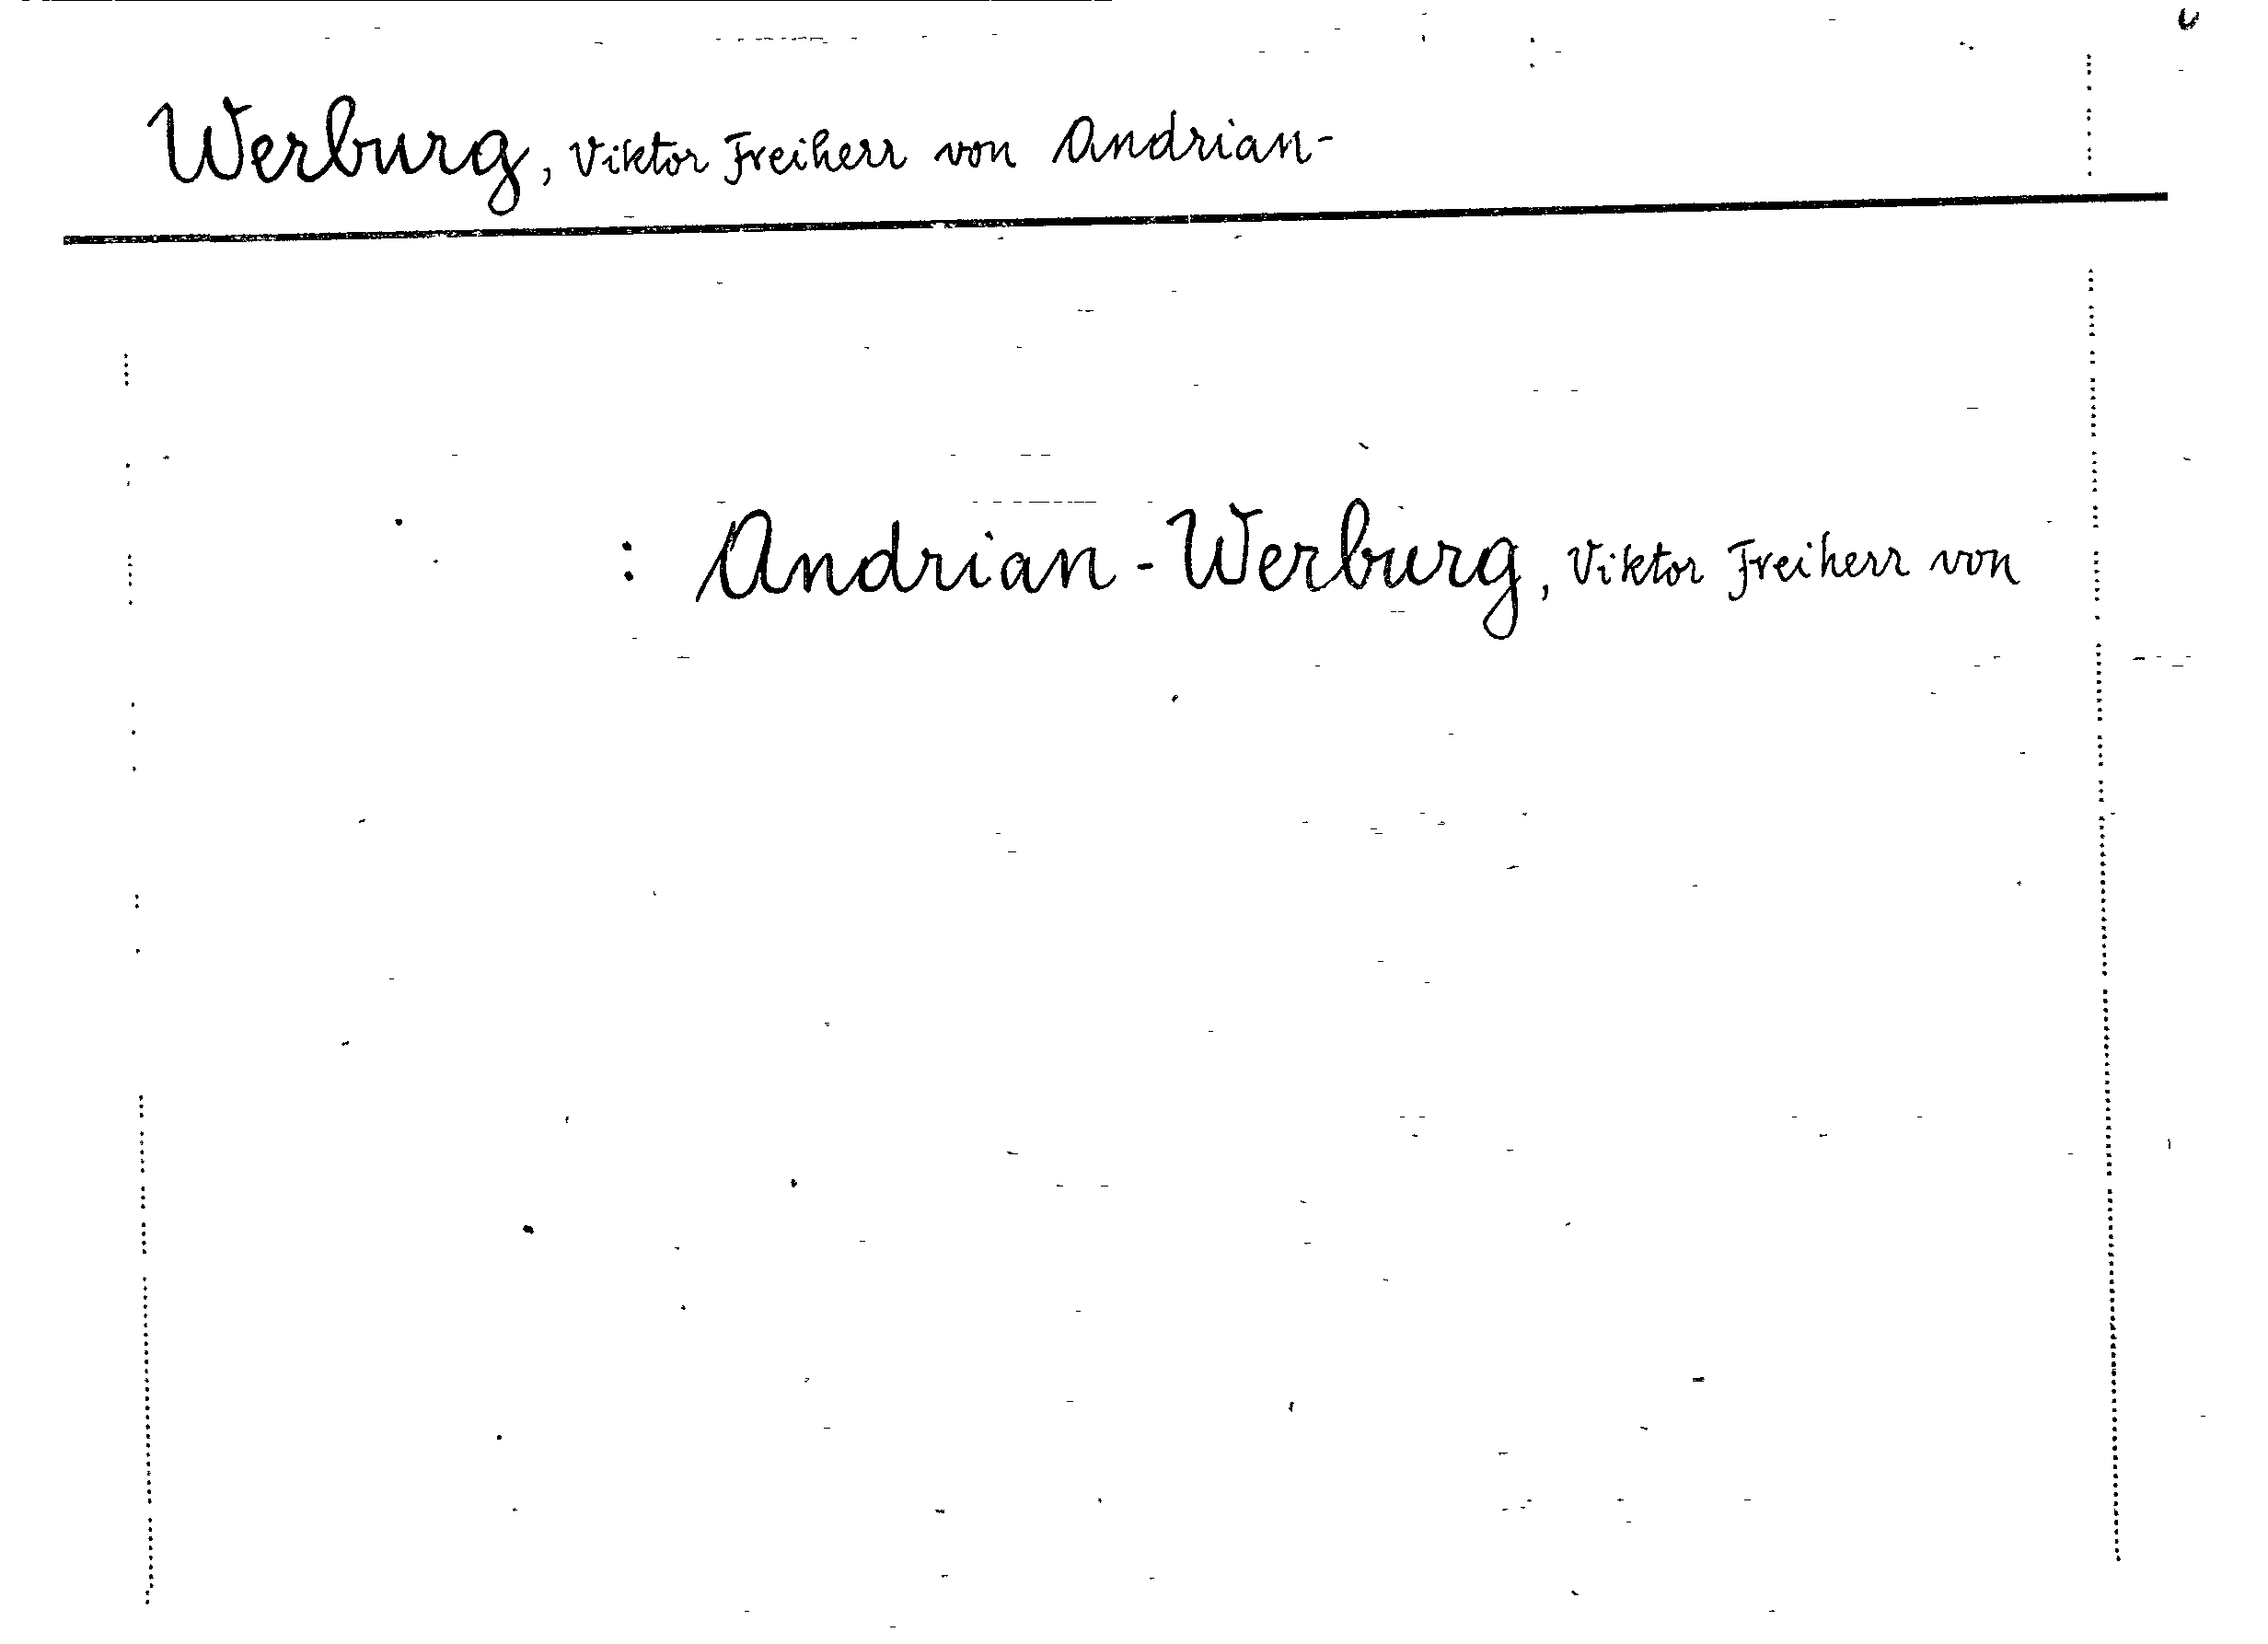 Werburg, Viktor Freiherr von Andrian-
: Andrian-Werburg, Viktor Freiherr von